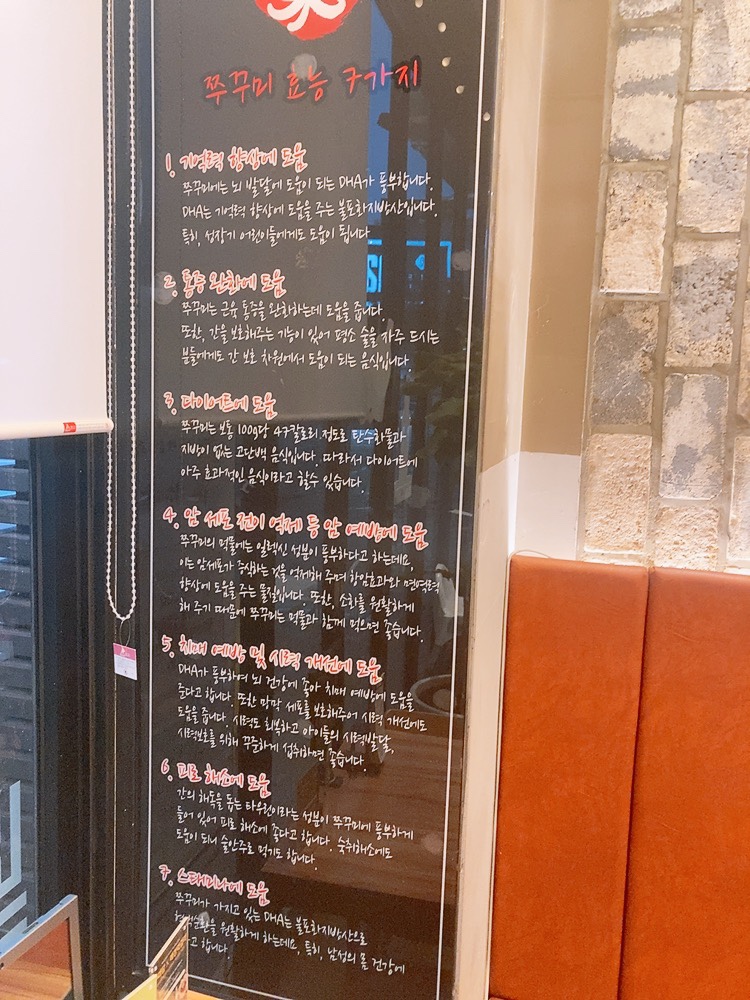 쭈꾸미 효능 7가지
1. 기억력 향상에 도움
쭈꾸미에는 뇌 발달에 도움이 되는 DHA가 풍부합니다.
DHA는 기억력 향상에 도움을 주는 불포화지방산입니다.
특히, 성장기 어린이들에게도 도움이 됩니다
2. 통증 완화에 도움
쭈꾸미는 근육 통증을 완화하는데 도움을 줍니다.
또한, 간을 보호해주는 기능이 있어 평소 술을 자주 드시는
분들에게도 간 보호 차원에서 도움이 되는 음식입니다.
3. 다이어트에 도움
쭈꾸미는 보통 100g당 47칼로리 정도로 탄수화물과
지방이 없는 고단백 음식입니다. 따라서 다이어트에
아주 효과적인 음식이라고 할수 있습니다.
4. 암 세포 전이 억제 등 암 예방에 도움
쭈꾸미의 먹물에는 일렉신 성분이 풍부하다고 하는데요,
이는 암세포가 증식하는 것을 억제해 주며 항암효과와 면역력
향상에 도움을 주는 물질입니다. 또한, 소화를 원활하게
해 주기 때문에 쭈꾸미는 먹물과 함께 먹으면 좋습니다.
5. 치매 예방 및 시력 개선에 도움
DHA가 풍부하여 뇌 건강에 좋아 치매 예방에 도움을
준다고 합니다. 또한 망막 세포를 보호해주어 시력 개선에도
도움을 줍니다. 시력도 회복하고 아이들의 시력발달,
시력보호를 위해 꾸준하게 섭취하면 좋습니다
6. 피로 해소에 도움
간의 해독을 돕는 타우린이라는 성분이 쭈꾸미에 풍부하게
들어 있어 피로 해소에 좋다고 합니다. 숙취해소에도
도움이 되니 술안주로 먹기도 합니다.
7. 스태미나에 도움
쭈꾸미가 가지고 있는 DHA는 불포화지방산으로
혈액순환을 원활하게 하는데요, 특히, 남성의 몸 건강에
고 합니다.